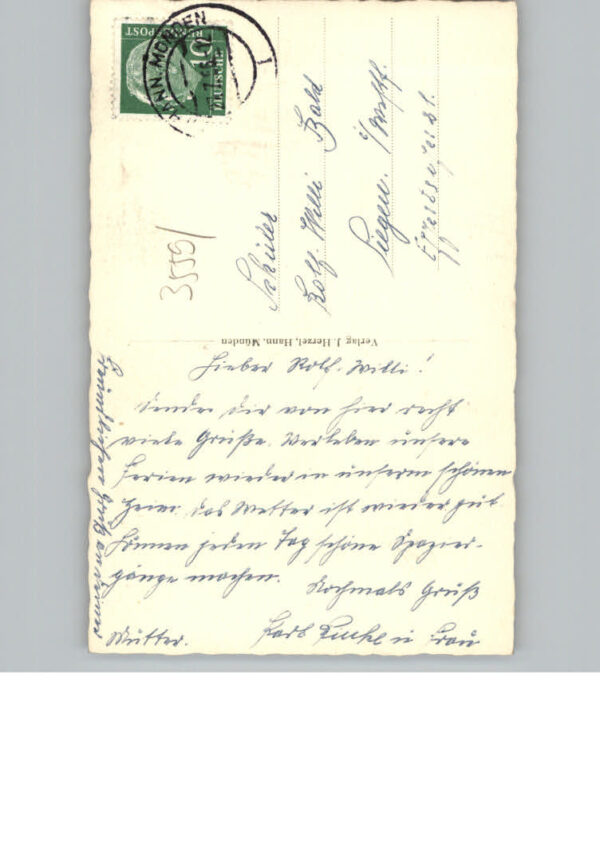 HANN. MÜNDEN
1
DEUTSCHE
BUNDESPOST
10
3559/
Schüler
Rolf-Willi Bald
Siegen. i/Westf.
Verlag J. Herzel, Hann. Münden
Lieber Rolf-Willi!
Sende Dir von hier recht
viele Grüße. Verleben unsere
Ferien wieder in unserm schönen
Heim. das Wetter ist wieder gut
können jeden Tag schöne Spazier-
gänge machen. Nochmals Gruß
Karl u Frau
Gruß an deine
Mutter.